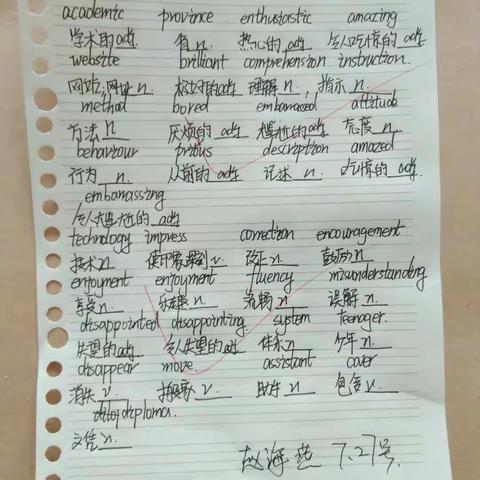 academic province enthustastic amazing
学术的 adj 省 n. 热心的 adj 令人吃惊的 adj
website brilliant comprehension instruction.
网站;网址 n. 极好的 adj 理解 n. 指示 n.
method bored embarrased attitude
方法 n 厌烦的 adj 尴尬的 adj 态度 n.
behaviour prious description amazed
行为 n. 从前的 adj 记述 n. 吃惊的 adj.
embarrassing
令人尴尬的 adj
technology impress correction encouragement
技术 n 使印象深刻 v. 改正 n. 鼓励 n
enjoyment enjoyment fluency misunderstanding
享受 n. 乐趣 n. 流畅 n 误解 n.
disappointed disappointing system teenager.
失望的 adj 令人失望的 adj 体系 n 少年 n.
disappear move assistant cover
消失 v. v. 助手 n 包含 v.
diploma.
文凭 n.
赵海燕 7.27号.